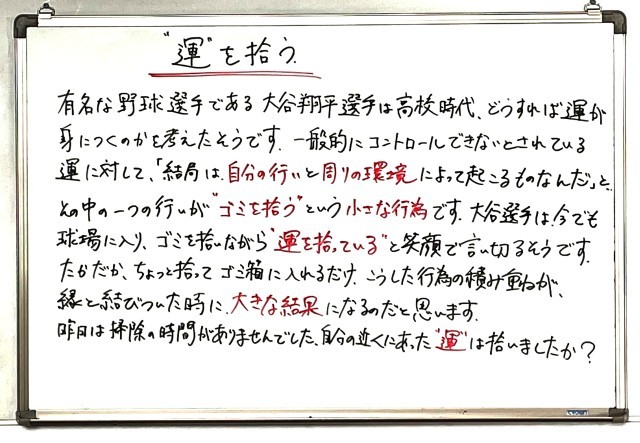 “運”を拾う
有名な野球選手である大谷翔平選手は高校時代、どうすれば運が
身につくのかを考えたそうです。一般的にコントロールできないとされている
運に対して、「結局は、自分の行いと周りの環境によって起こるものなんだ」と、
その中の一つの行いが“ゴミを拾う”という小さな行為です。大谷選手は、今でも
球場に入り、ゴミを拾いながら“運を拾っている”と笑顔で言い切るそうです。
たかだか、ちょっと拾ってゴミ箱に入れるだけ、こうした行為の積み重ねが、
縁と結びついた時に、大きな結果になるのだと思います。
昨日は掃除の時間がありませんでした、自分の近くにあった“運”は拾いましたか?